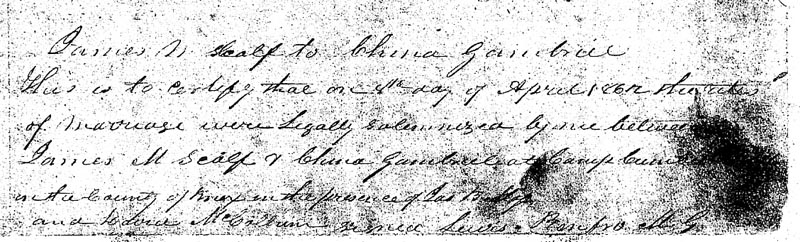 James M Scalf to China Gambrel
This is to certify that on 8th day of April 1862 the rites
of Marriage were Legally solemnized by me between
James M Scalf & China Gambrel at Camp
in the County of Knox in the presence of Jas
and signed Lewis Renfro M. G.